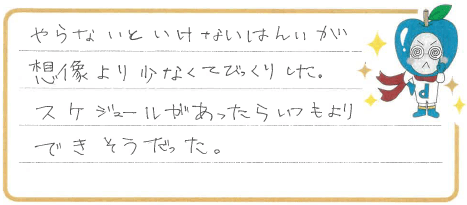 やらないといけないはんいが
想像より少なくてびっくりした。
スケジュールがあったらいつもより
できそうだった。
d